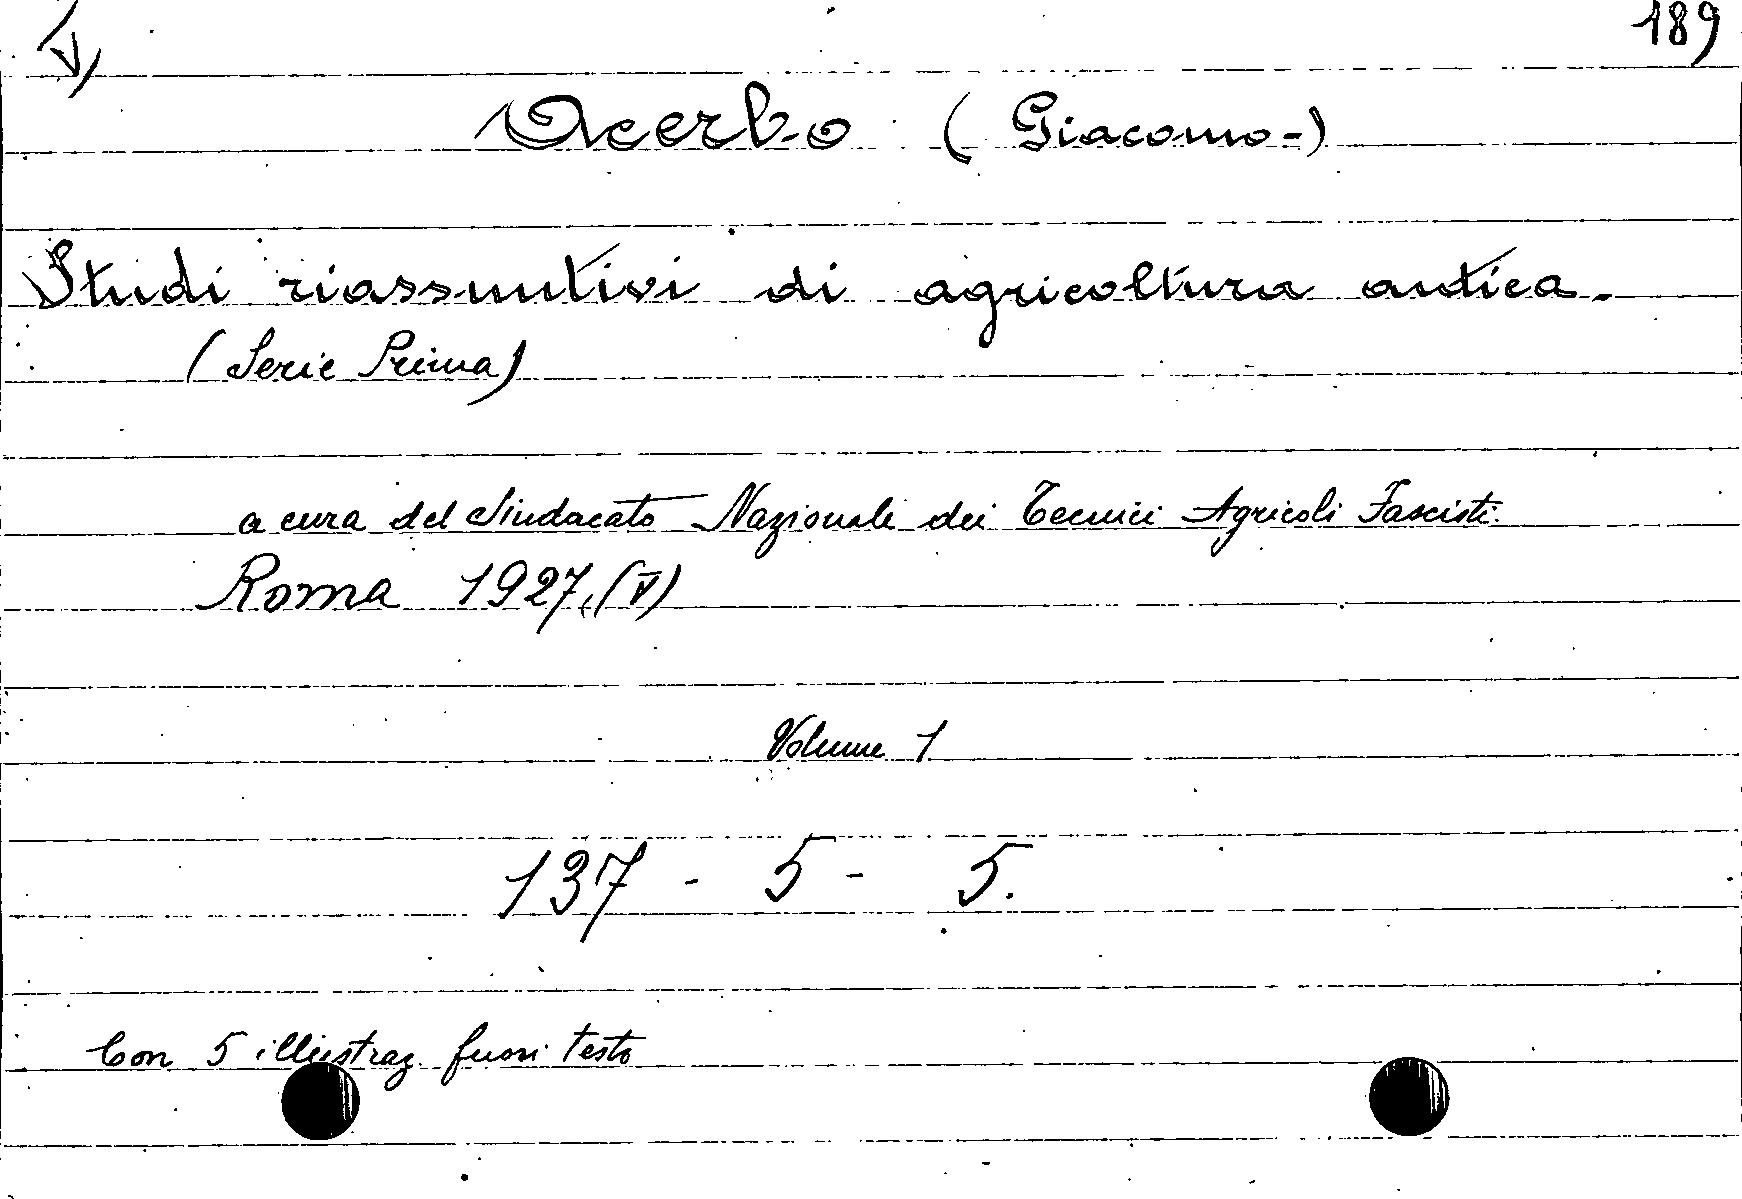 189
Acerbo (Giacomo-)
Studi riassuntivi di agricoltura antica.
(Serie Prima)
a cura del Sindacato Nazionale dei Tecnici Agricoli Fascisti.
Roma 1927, (V)
Volume 1
137 - 5 - 5.
Con 5 illustraz. fuori testo